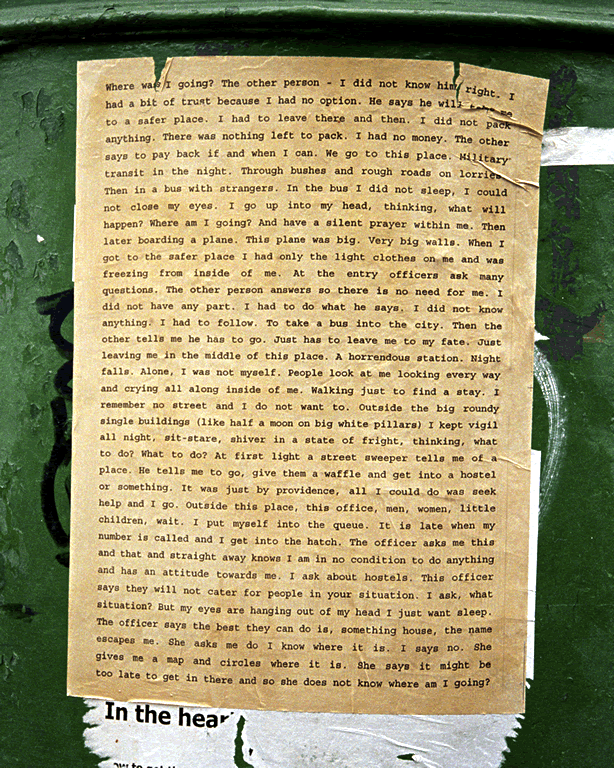 Where was I going? The other person - I did not know him right. I
had a bit of trust because I had no option. He says he will take me
to a safer place. I had to leave there and then. I did not pack
anything. There was nothing left to pack. I had no money. The other
says to pay back if and when I can. We go to this place. Military
transit in the night. Through bushes and rough roads on lorries.
Then in a bus with strangers. In the bus I did not sleep, I could
not close my eyes. I go up into my head, thinking, what will
happen? Where am I going? And have a silent prayer within me. Then
later boarding a plane. This plane was big. Very big walls. When I
got to the safer place I had only the light clothes on me and was
freezing from inside of me. At the entry officers ask many
questions. The other person answers so there is no need for me. I
did not have any part. I had to do what he says. I did not know
anything. I had to follow. To take a bus into the city. Then the
other tells me he has to go. Just has to leave me to my fate. Just
leaving me in the middle of this place. A horrendous station. Night
falls. Alone, I was not myself. People look at me looking every way
and crying all along inside of me. Walking just to find a stay. I
remember no street and I do not want to. Outside the big roundy
single buildings (like half a moon on big white pillars) I kept vigil
all night, sit-stare, shiver in a state of fright, thinking, what
to do? What to do? At first light a street sweeper tells me of a
place. He tells me to go, give them a waffle and get into a hostel
or something. It was just by providence, all I could do was seek
help and I go. Outside this place, this office, men, women, little
children, wait. I put myself into the queue. It is late when my
number is called and I get into the hatch. The officer asks me this
and that and straight away knows I am in no condition to do anything
and has an attitude towards me. I ask about hostels. This officer
says they will not cater for people in your situation. I ask, what
situation? But my eyes are hanging out of my head I just want sleep.
The officer says the best they can do is, something house, the name
escapes me. She asks me do I know where it is. I says no. She
gives me a map and circles where it is. She says it might be
too late to get in there and so she does not know where am I going?
In the hear